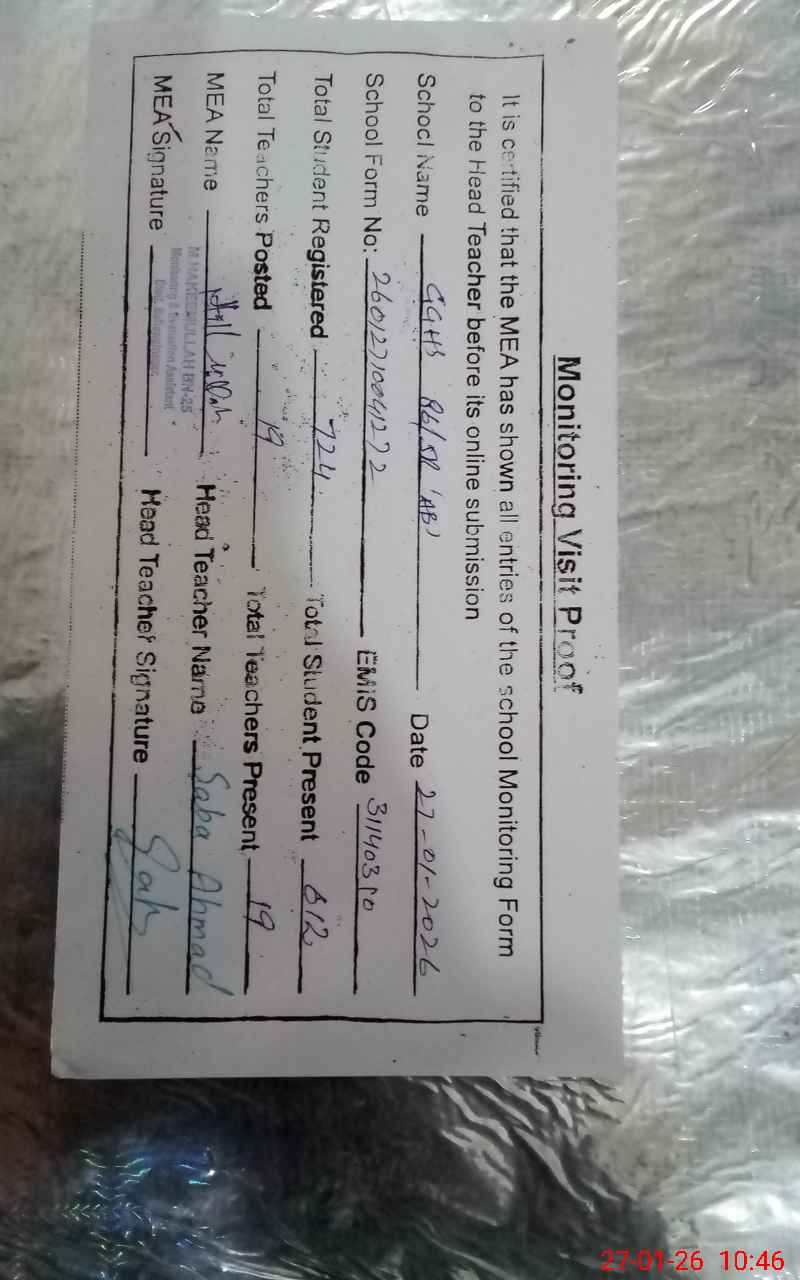 Monitoring Visit Proof
It is certified that the MEA has shown all entries of the school Monitoring Form
to the Head Teacher before its online submission
School Name GGHS 86/5R 'AB' Date 27-01-2026
School Form No: 26012710041272 EMIS Code 31140310
Total Student Registered 724 Total Student Present 612
Total Teachers Posted 19 Total Teachers Present 19
MEA Name Head Teacher Name Saba Ahmad
M HAKEEM ULLAH BN-25
Monitoring & Evaluation Assistant
MEA Signature Head Teacher Signature Sah
27-01-26 10:46